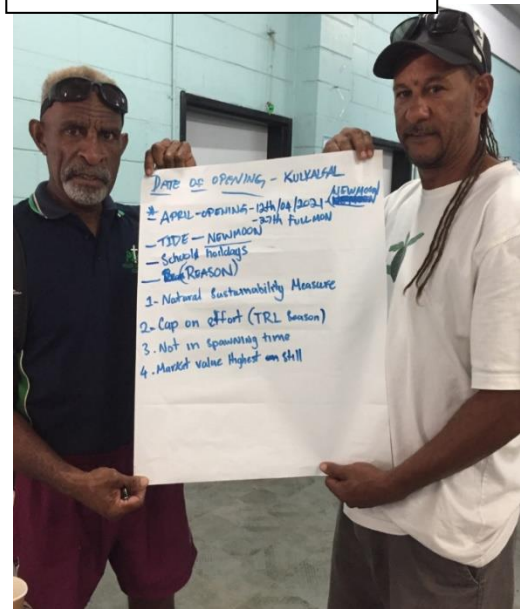 DATE OF OPENING - KULKALGAL
* APRIL - OPENING - 12th/04/2021 - NEWMOON
- 27th FULLMON
- TIDE - NEWMOON
- Schools holidays
- (REASON)
1 - Natural Sustainability Measure
2 - Cap on effort (TRL Season)
3. Not in spawning time
4. Market value Highest still